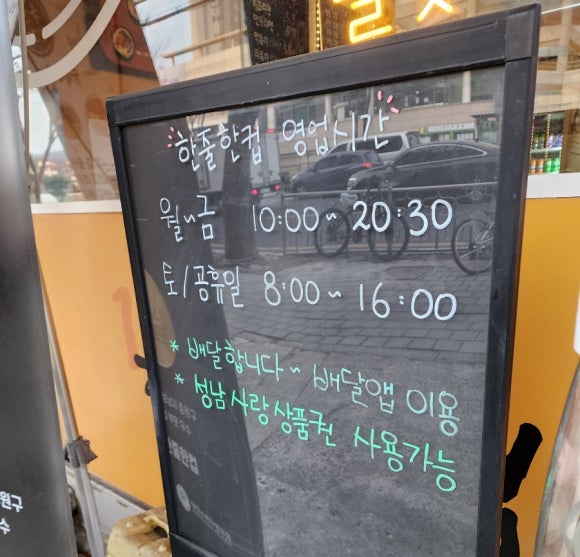 한줄한컵 영업시간
월~금 10:00~20:30
토/공휴일 8:00~16:00
* 배달합니다~ 배달앱 이용
* 성남사랑상품권 사용가능